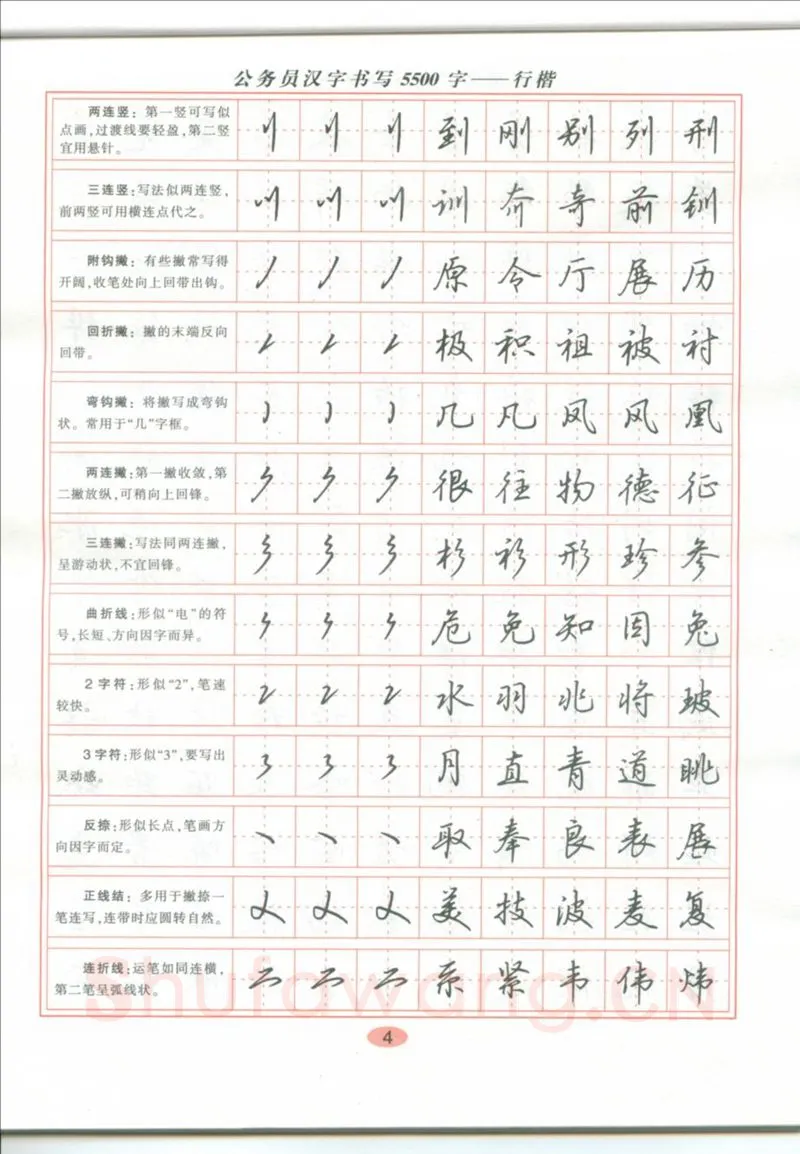 公务员汉字书写5500字——行楷
两连竖：第一竖可写似
点画，过渡线要轻盈，第二竖
宜用悬针。
到 刚 别 列 刑
三连竖：写法似两连竖，
前两竖可用横连点代之。
训 奔 奇 前 钏
附钩撇：有些撇常写得
开阔，收笔处向上回带出钩。
原 令 厅 展 历
回折撇：撇的末端反向
回带。
极 积 祖 被 衬
弯钩撇：将撇写成弯钩
状。常用于“几”字框。
几 凡 凤 风 凰
两连撇：第一撇收敛，第
二撇放纵，可稍向上回锋。
很 往 物 德 征
三连撇：写法同两连撇，
呈游动状，不宜回锋。
杉 衫 形 珍 参
曲折线：形似“电”的符
号，长短、方向因字而异。
危 免 知 因 兔
2字符：形似“2”，笔速
较快。
水 羽 兆 将 玻
3字符：形似“3”，要写出
灵动感。
月 直 青 道 眺
反捺：形似长点，笔画方
向因字而定。
取 奉 良 表 展
正线结：多用于撇捺一
笔连写，连带时应圆转自然。
美 技 波 麦 复
连折线：运笔如同连横，
第二笔呈弧线状。
系 紧 韦 伟 炜
Shufawang.CN
4